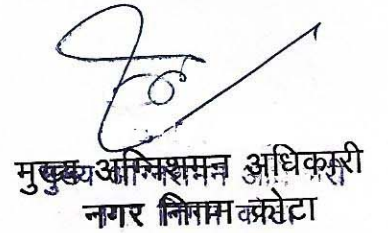 मुख्य अग्निशमन अधिकारी
नगर निगम कोटा